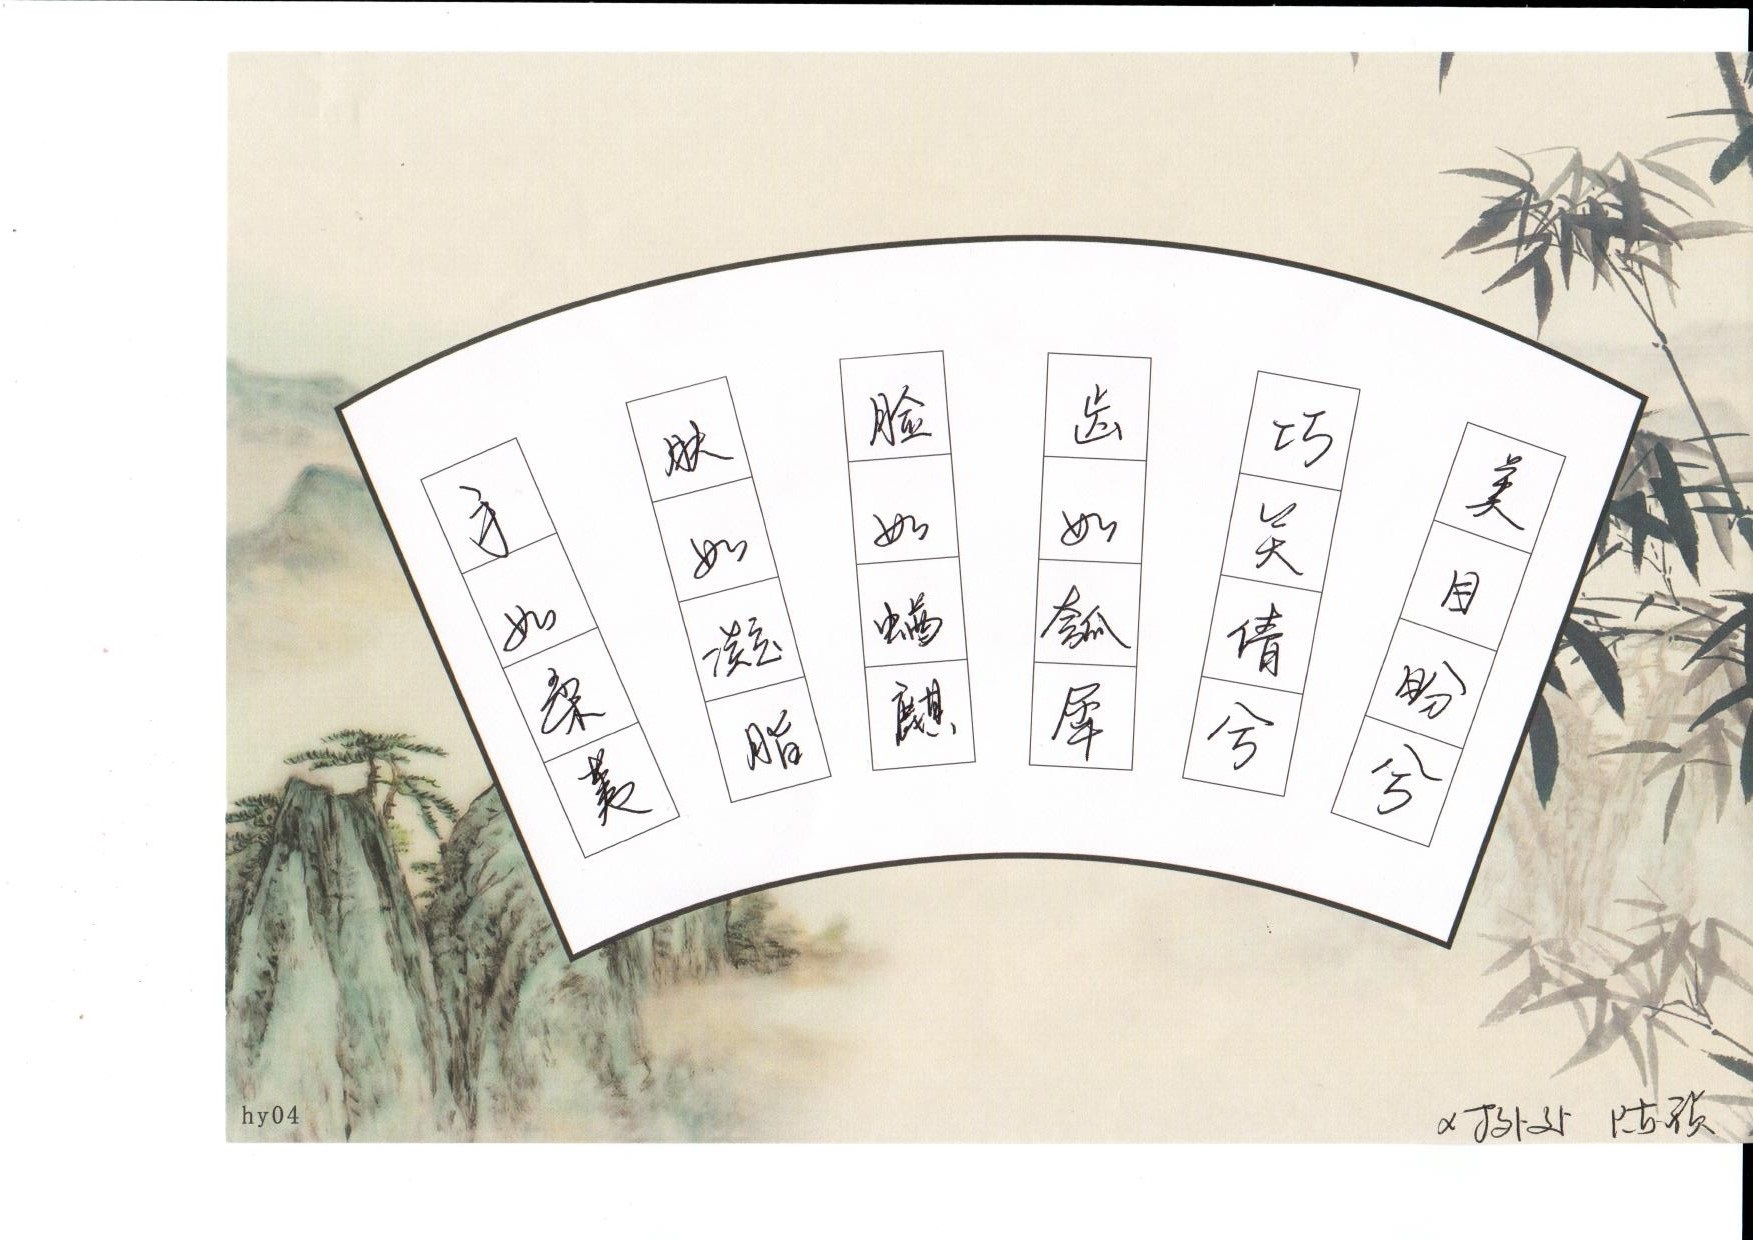 手如柔荑
肤如凝脂
脸如蝤麒
齿如瓠犀
巧笑倩兮
美目盼兮
hy04